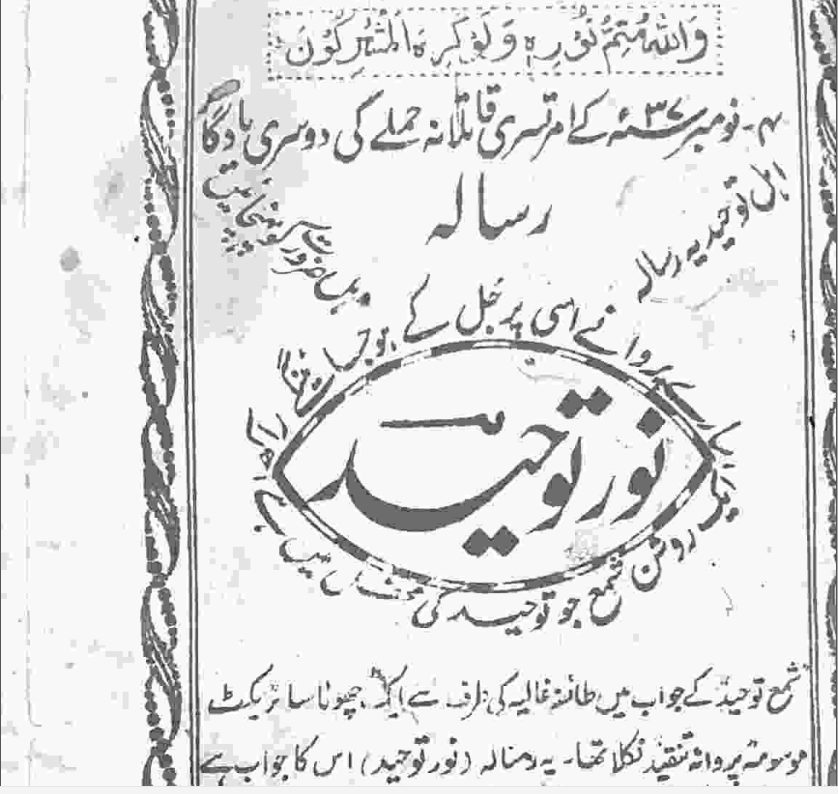 وَاللّٰهُ مُتِمُّ نُوْرِہٖ وَلَوْ کَرِہَ الْمُشْرِکُوْنَ
۴۔ نومبر ۳۷ء کے امرتسری قاتلانہ حملے کی دوسری یادگار
اہل توحید یہ رسالہ
رسالہ
ضرور
سارے پروانے اسی پر جل کے ہو جائیں گے راکھ
نور توحید
ایک روشن شمع جو توحید کی محفل میں ہے
شمع توحید کے جواب میں طائفہ غالیہ کی طرف سے ایک چھوٹا سا ٹریکٹ
موسومہ پروانہ تنقید نکلا تھا۔ یہ رسالہ (نور توحید) اس کا جواب ہے